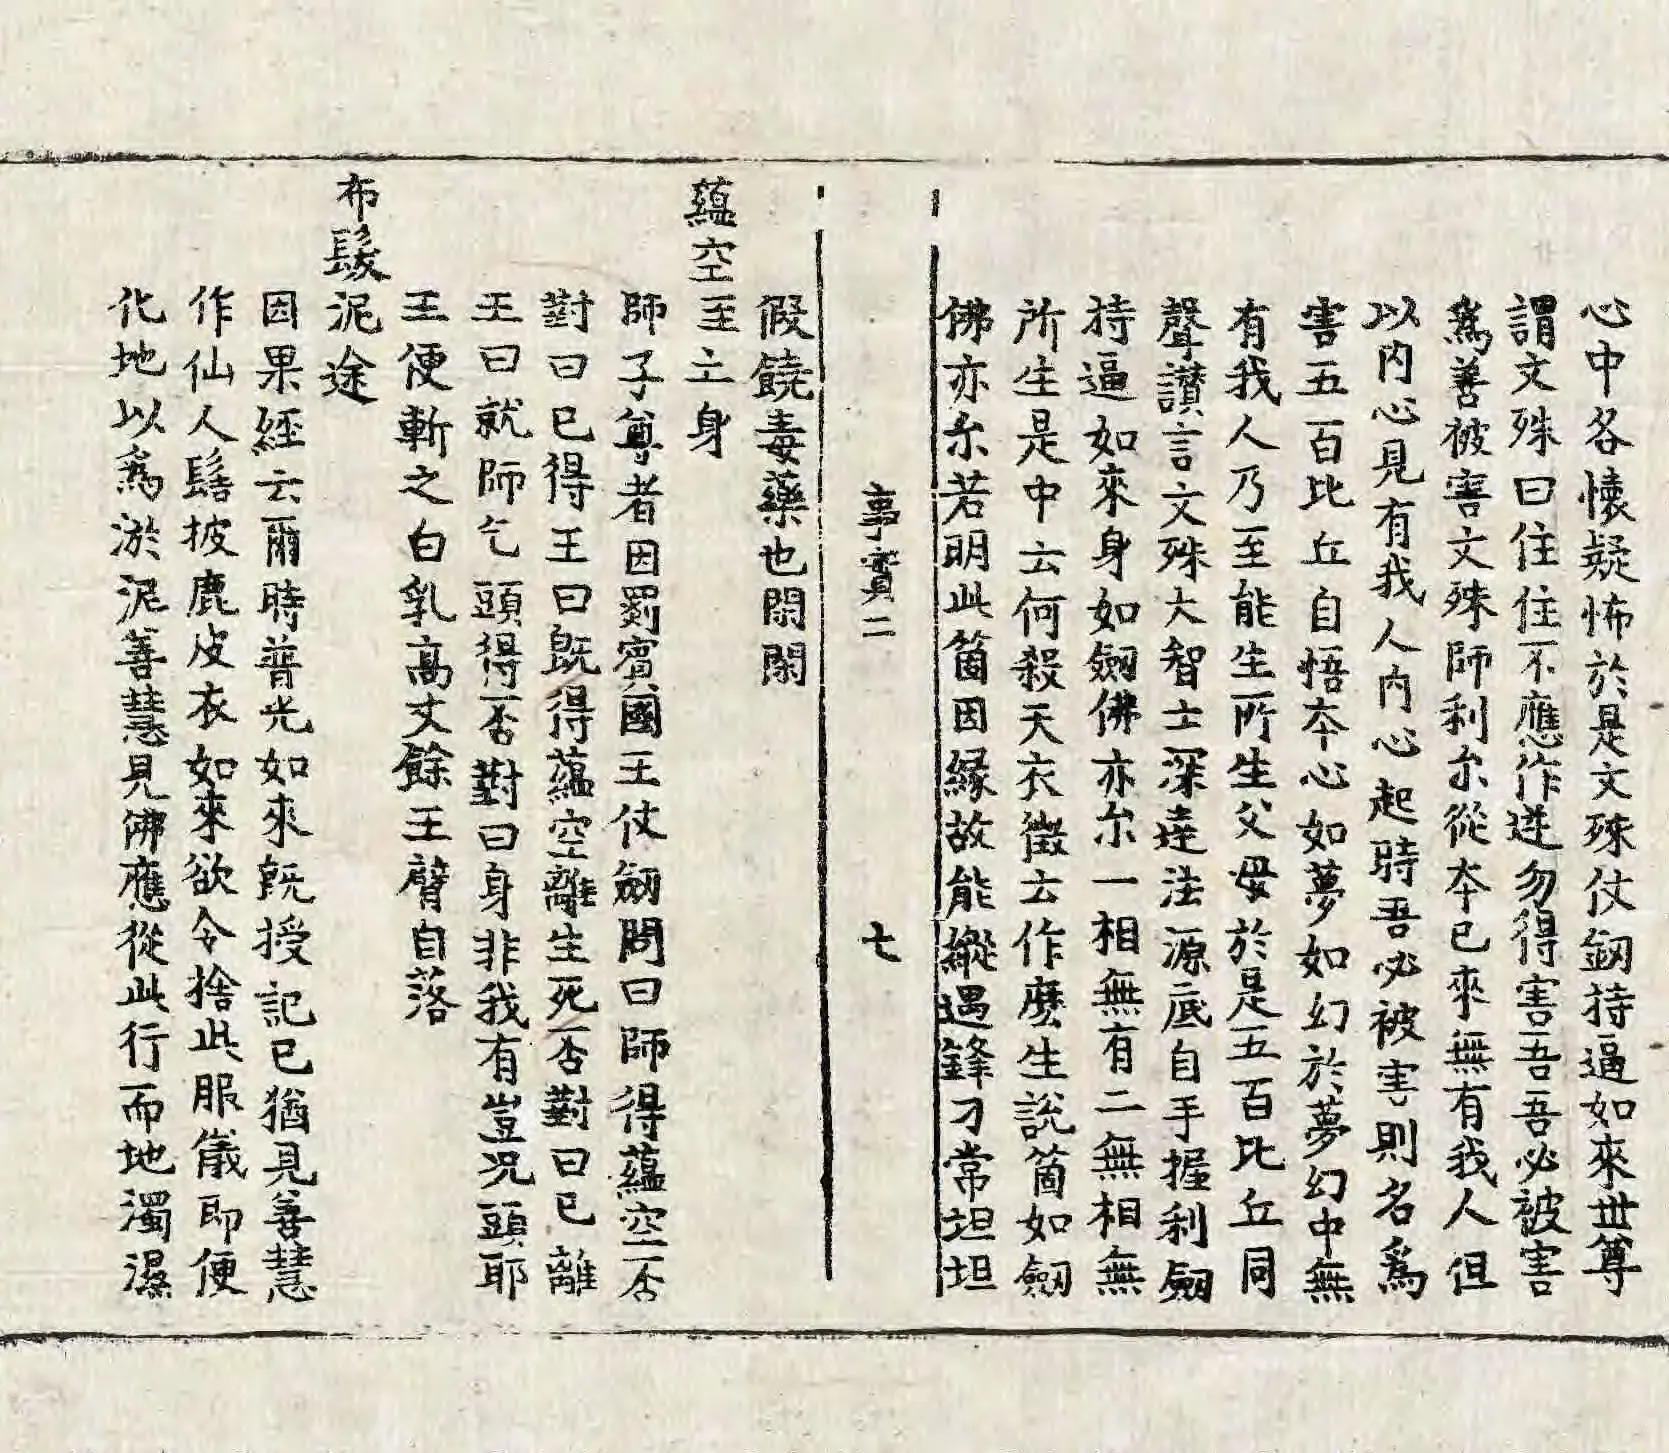 心中各懷疑怖於是文殊仗劒持逼如來世尊
謂文殊曰住住不應作逆勿得害吾吾必被害
爲善被害文殊師利尒從本已來無有我人但
以內心見有我人內心起時吾必被害則名爲
害五百比丘自悟本心如夢如幻於夢幻中無
有我人乃至能生所生父母於是五百比丘同
聲讃言文殊大智士深達法源底自手握利劒
持逼如來身如劒佛亦尒一相無有二無相無
所生是中云何殺天衣徵云作麽生說箇如劒
佛亦尒若明此箇因緣故能縱遇鋒刀常坦坦
事實二 七
假饒毒藥也閑閑
蘊空至之身
師子尊者因罽賓國王仗劒問曰師得蘊空否
對曰已得王曰旣得蘊空離生死否對曰已離
王曰就師乞頭得否對曰身非我有豈况頭耶
王便斬之白乳高丈餘王臂自落
布髮泥途
因果經云爾時普光如來旣授記已猶見善慧
作仙人髻披鹿皮衣如來欲令捨此服儀即便
化地以爲淤泥善慧見佛應從此行而地濁濕